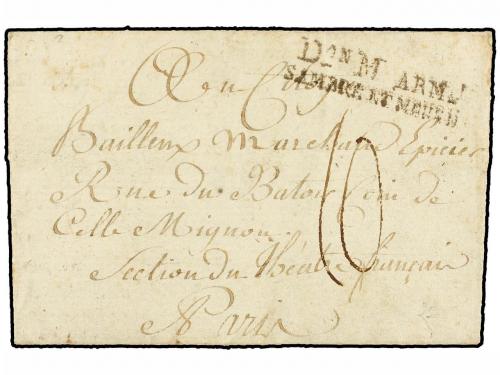 Don M ARM.
SAMBRE ET MEUSE
Au Cit
Bailleux Marchand Epicier
10
Rue du Batoir Coin de
Celle Mignon
Section du Théatre français
A Paris